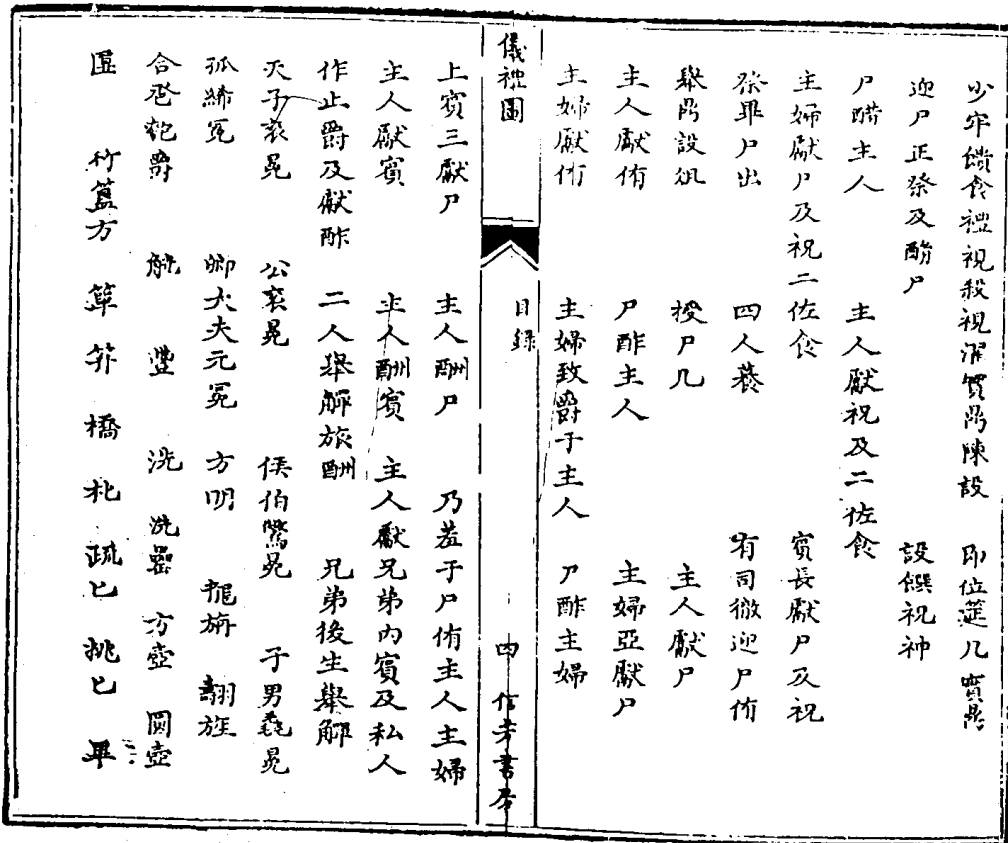 少牢饋食禮視殺視濯實鼎陳設　即位筵几實鼎
迎尸正祭及酳尸　設饌祝神
尸醋主人　主人獻祝及二佐食
主婦獻尸及祝二佐食　賓長獻尸及祝
祭畢尸出　四人餕　有司徹迎尸侑
舉鼎設俎　授尸几　主人獻尸
主人獻侑　尸酢主人　主婦亞獻尸
主婦獻侑　主婦致爵于主人　尸酢主婦
儀禮圖　目錄　四　信芳書房
上賓三獻尸　主人酬尸　乃羞于尸侑主人主婦
主人獻賓　主人酬賓　主人獻兄弟內賓及私人
作止爵及獻酢　二人舉觶旅酬　兄弟後生舉觶
天子袞冕　公袞冕　侯伯鷩冕　子男毳冕
孤絺冕　卿大夫元冕　方明　龍旂　翿旌
合卺匏爵　觶　豐　洗　洗罍　方壺　圓壺
匴　竹簋方　簞　笲　橋　朼　疏匕　挑匕　畢